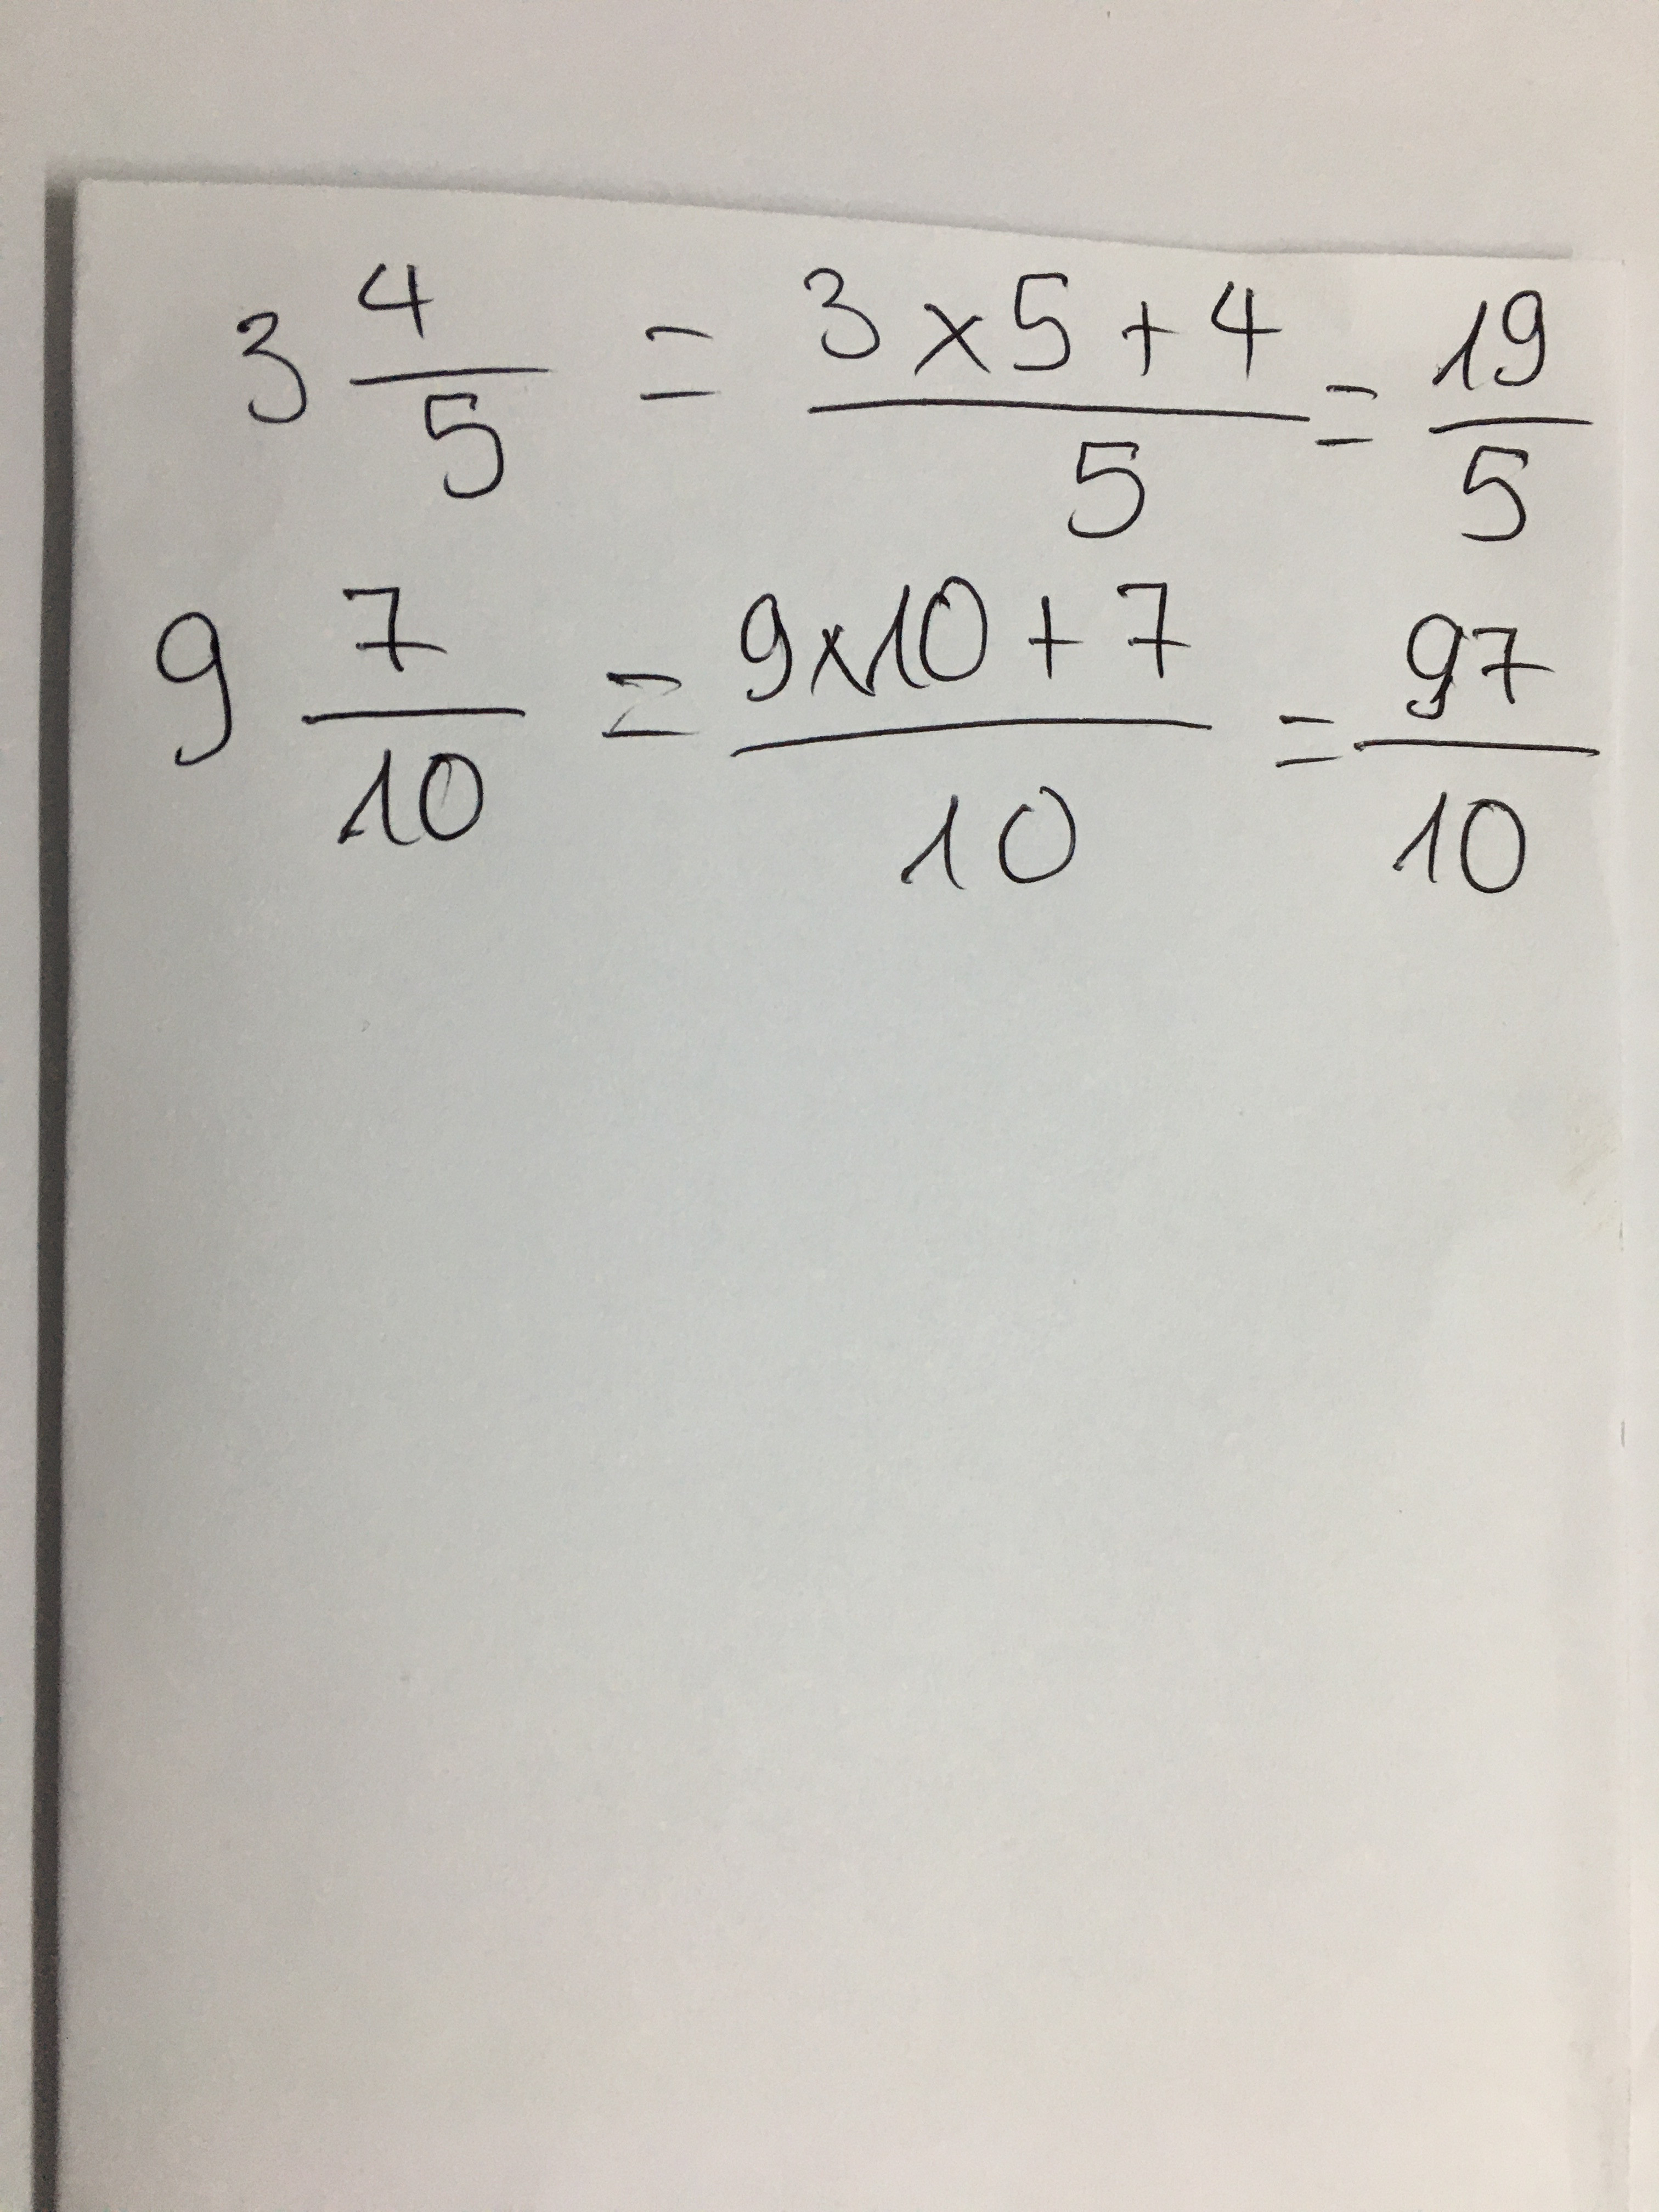 3 4/5 = (3 x 5 + 4)/5 = 19/5
9 7/10 = (9x10 + 7)/10 = 97/10